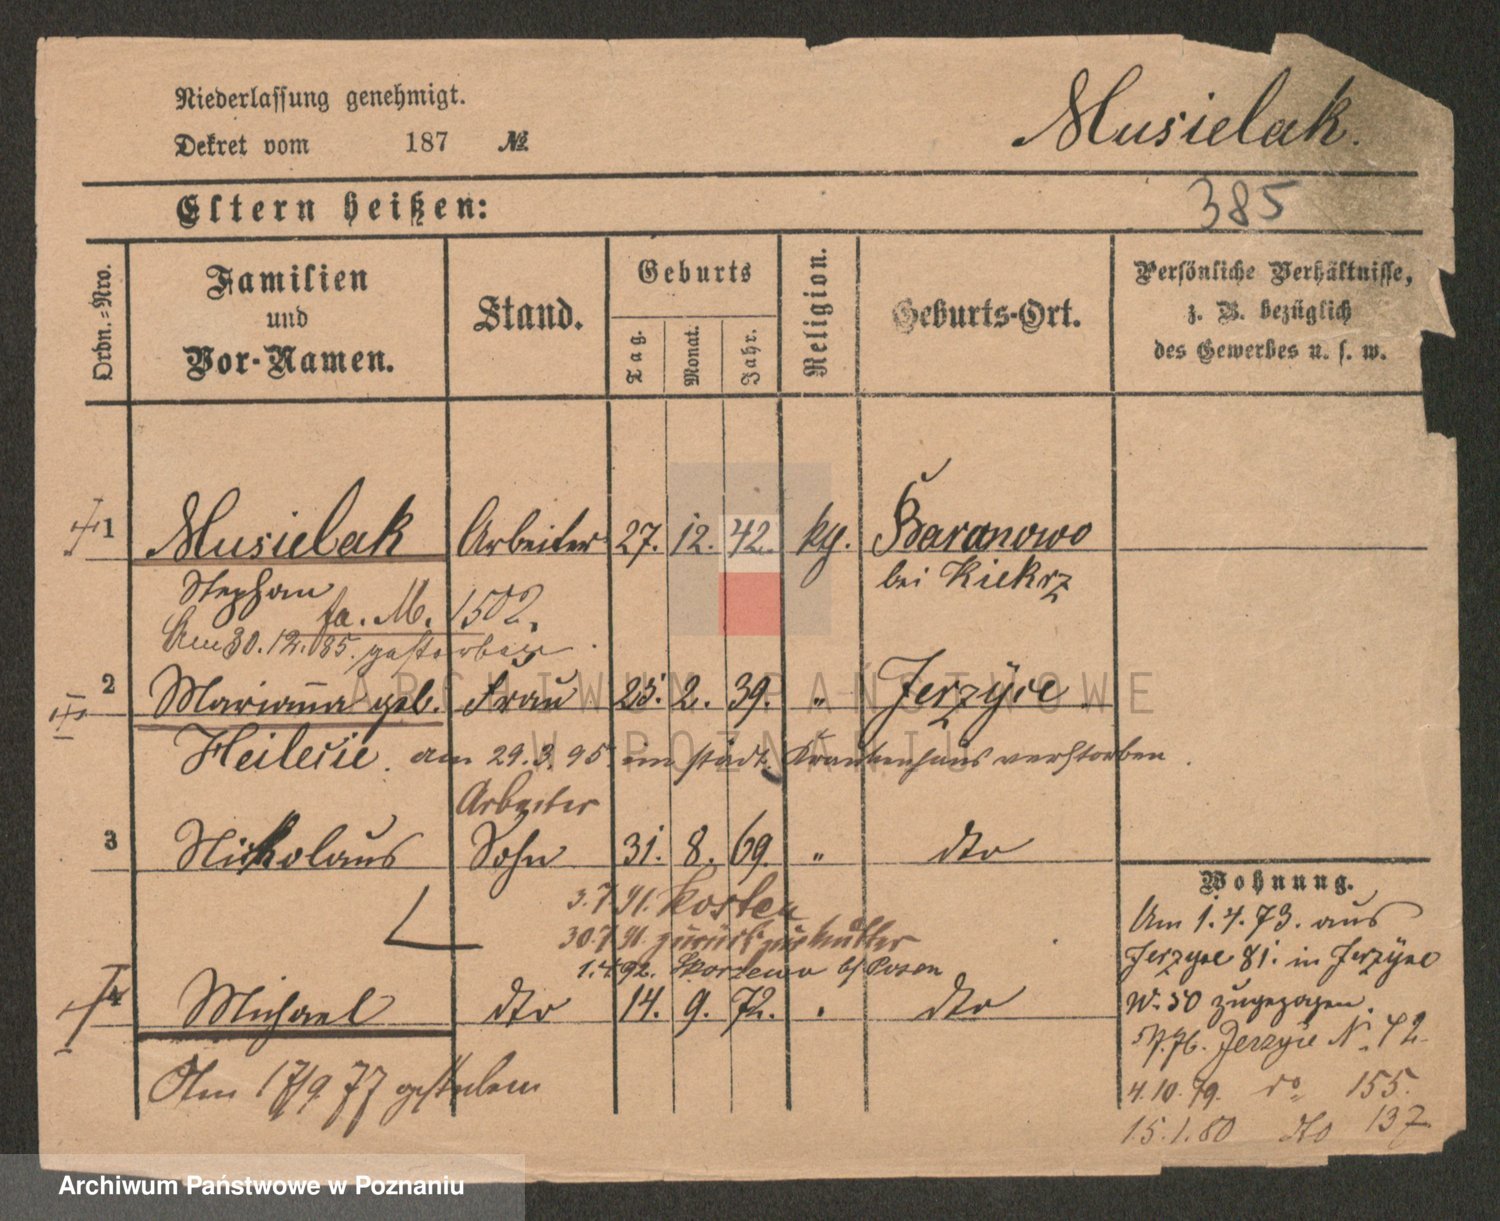 Niederlassung genehmigt.
Dekret vom 187 №
Musielak.
Eltern heißen:
385
Ordn.-Nro.
Familien
und
Vor-Namen.
Stand.
Geburts
Tag.
Monat.
Jahr.
Religion.
Geburts-Ort.
Persönliche Verhältnisse,
z. B. bezüglich
des Gewerbes u. s. w.
1 Musielak Arbeiter 27. 12. 42. kg. Baranowo
Stephan bei Kiekrz
fa. M. 1502.
Am 30.12.85. gestorben.
2 Marianna geb. Frau 25. 2. 39. " Jerzyce
Heilesie. am 29.3.95 im städt. Krankenhaus verstorben.
Arbeiter
3 Nikolaus Sohn 31. 8. 69. " dto
3.7.91. Kosten
30.7.91. zurück zur Mutter
1.4.92. bei Posen
4 Michael dto 14. 9. 72. " dto
Am 17/9 77 gestorben
Wohnung.
Am 1.4.73. aus
Jerzyce 81. in Jerzyce
No. 50 zugezogen.
Jerzyce N. 42
4.10.79. do 155.
15.1.80 dto 137
ARCHIWUM PAŃSTWOWE
W POZNANIU
Archiwum Państwowe w Poznaniu